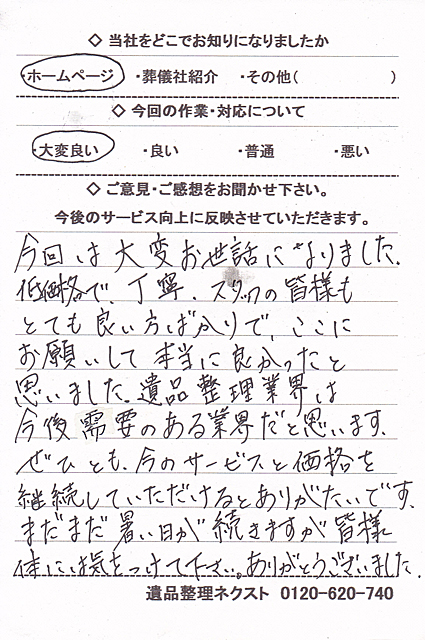 ◇ 当社をどこでお知りになりましたか
・ホームページ ・葬儀社紹介 ・その他( )
◇ 今回の作業・対応について
・大変良い ・良い ・普通 ・悪い
◇ ご意見・ご感想をお聞かせ下さい。
今後のサービス向上に反映させていただきます。
今回は大変お世話になりました。
低価格で、丁寧、スタッフの皆様も
とても良い方ばかりで、ここに
お願いして本当に良かったと
思いました。遺品整理業界は
今後需要のある業界だと思います。
ぜひとも、今のサービスと価格を
継続していただけるとありがたいです。
まだまだ暑い日が続きますが皆様
体にはお気をつけて下さい。ありがとうございました。
遺品整理ネクスト 0120-620-740